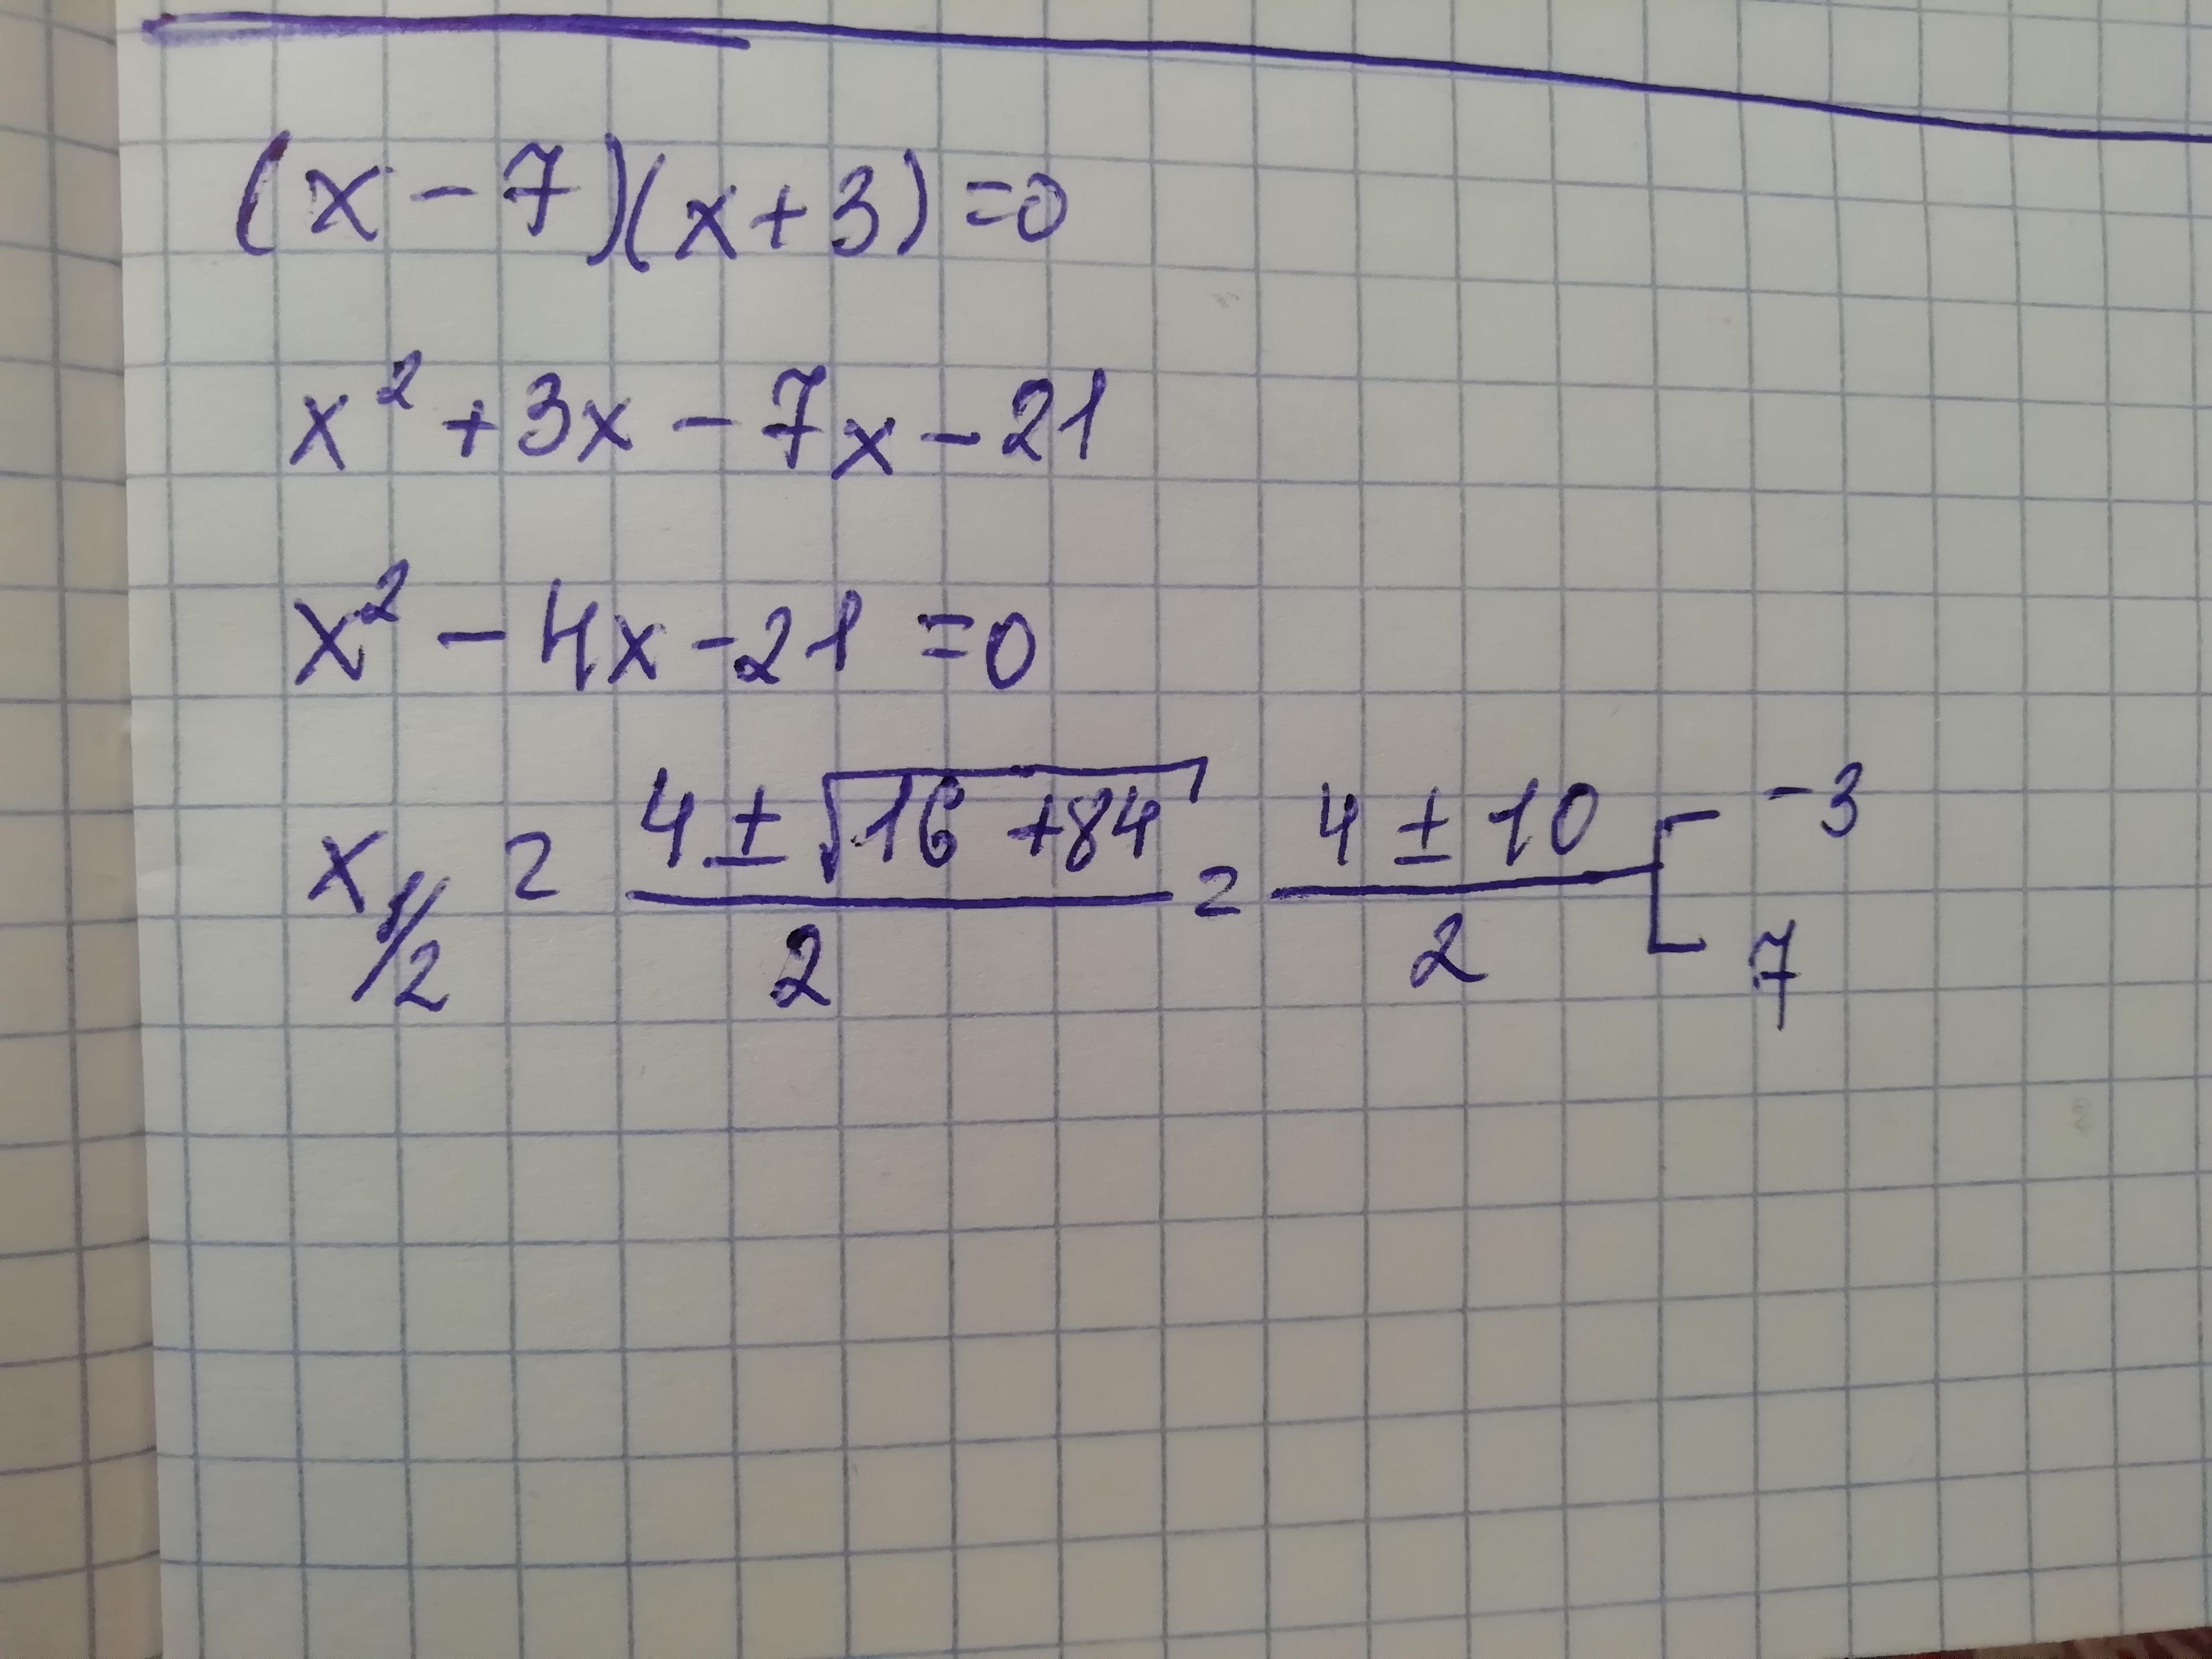 (x-7)(x+3)=0
x² +3x -7x -21
x² -4x -21 =0
x₁/₂ = (4 ± √(16 +84))/2 = (4 ± 10)/2 [ -3
7